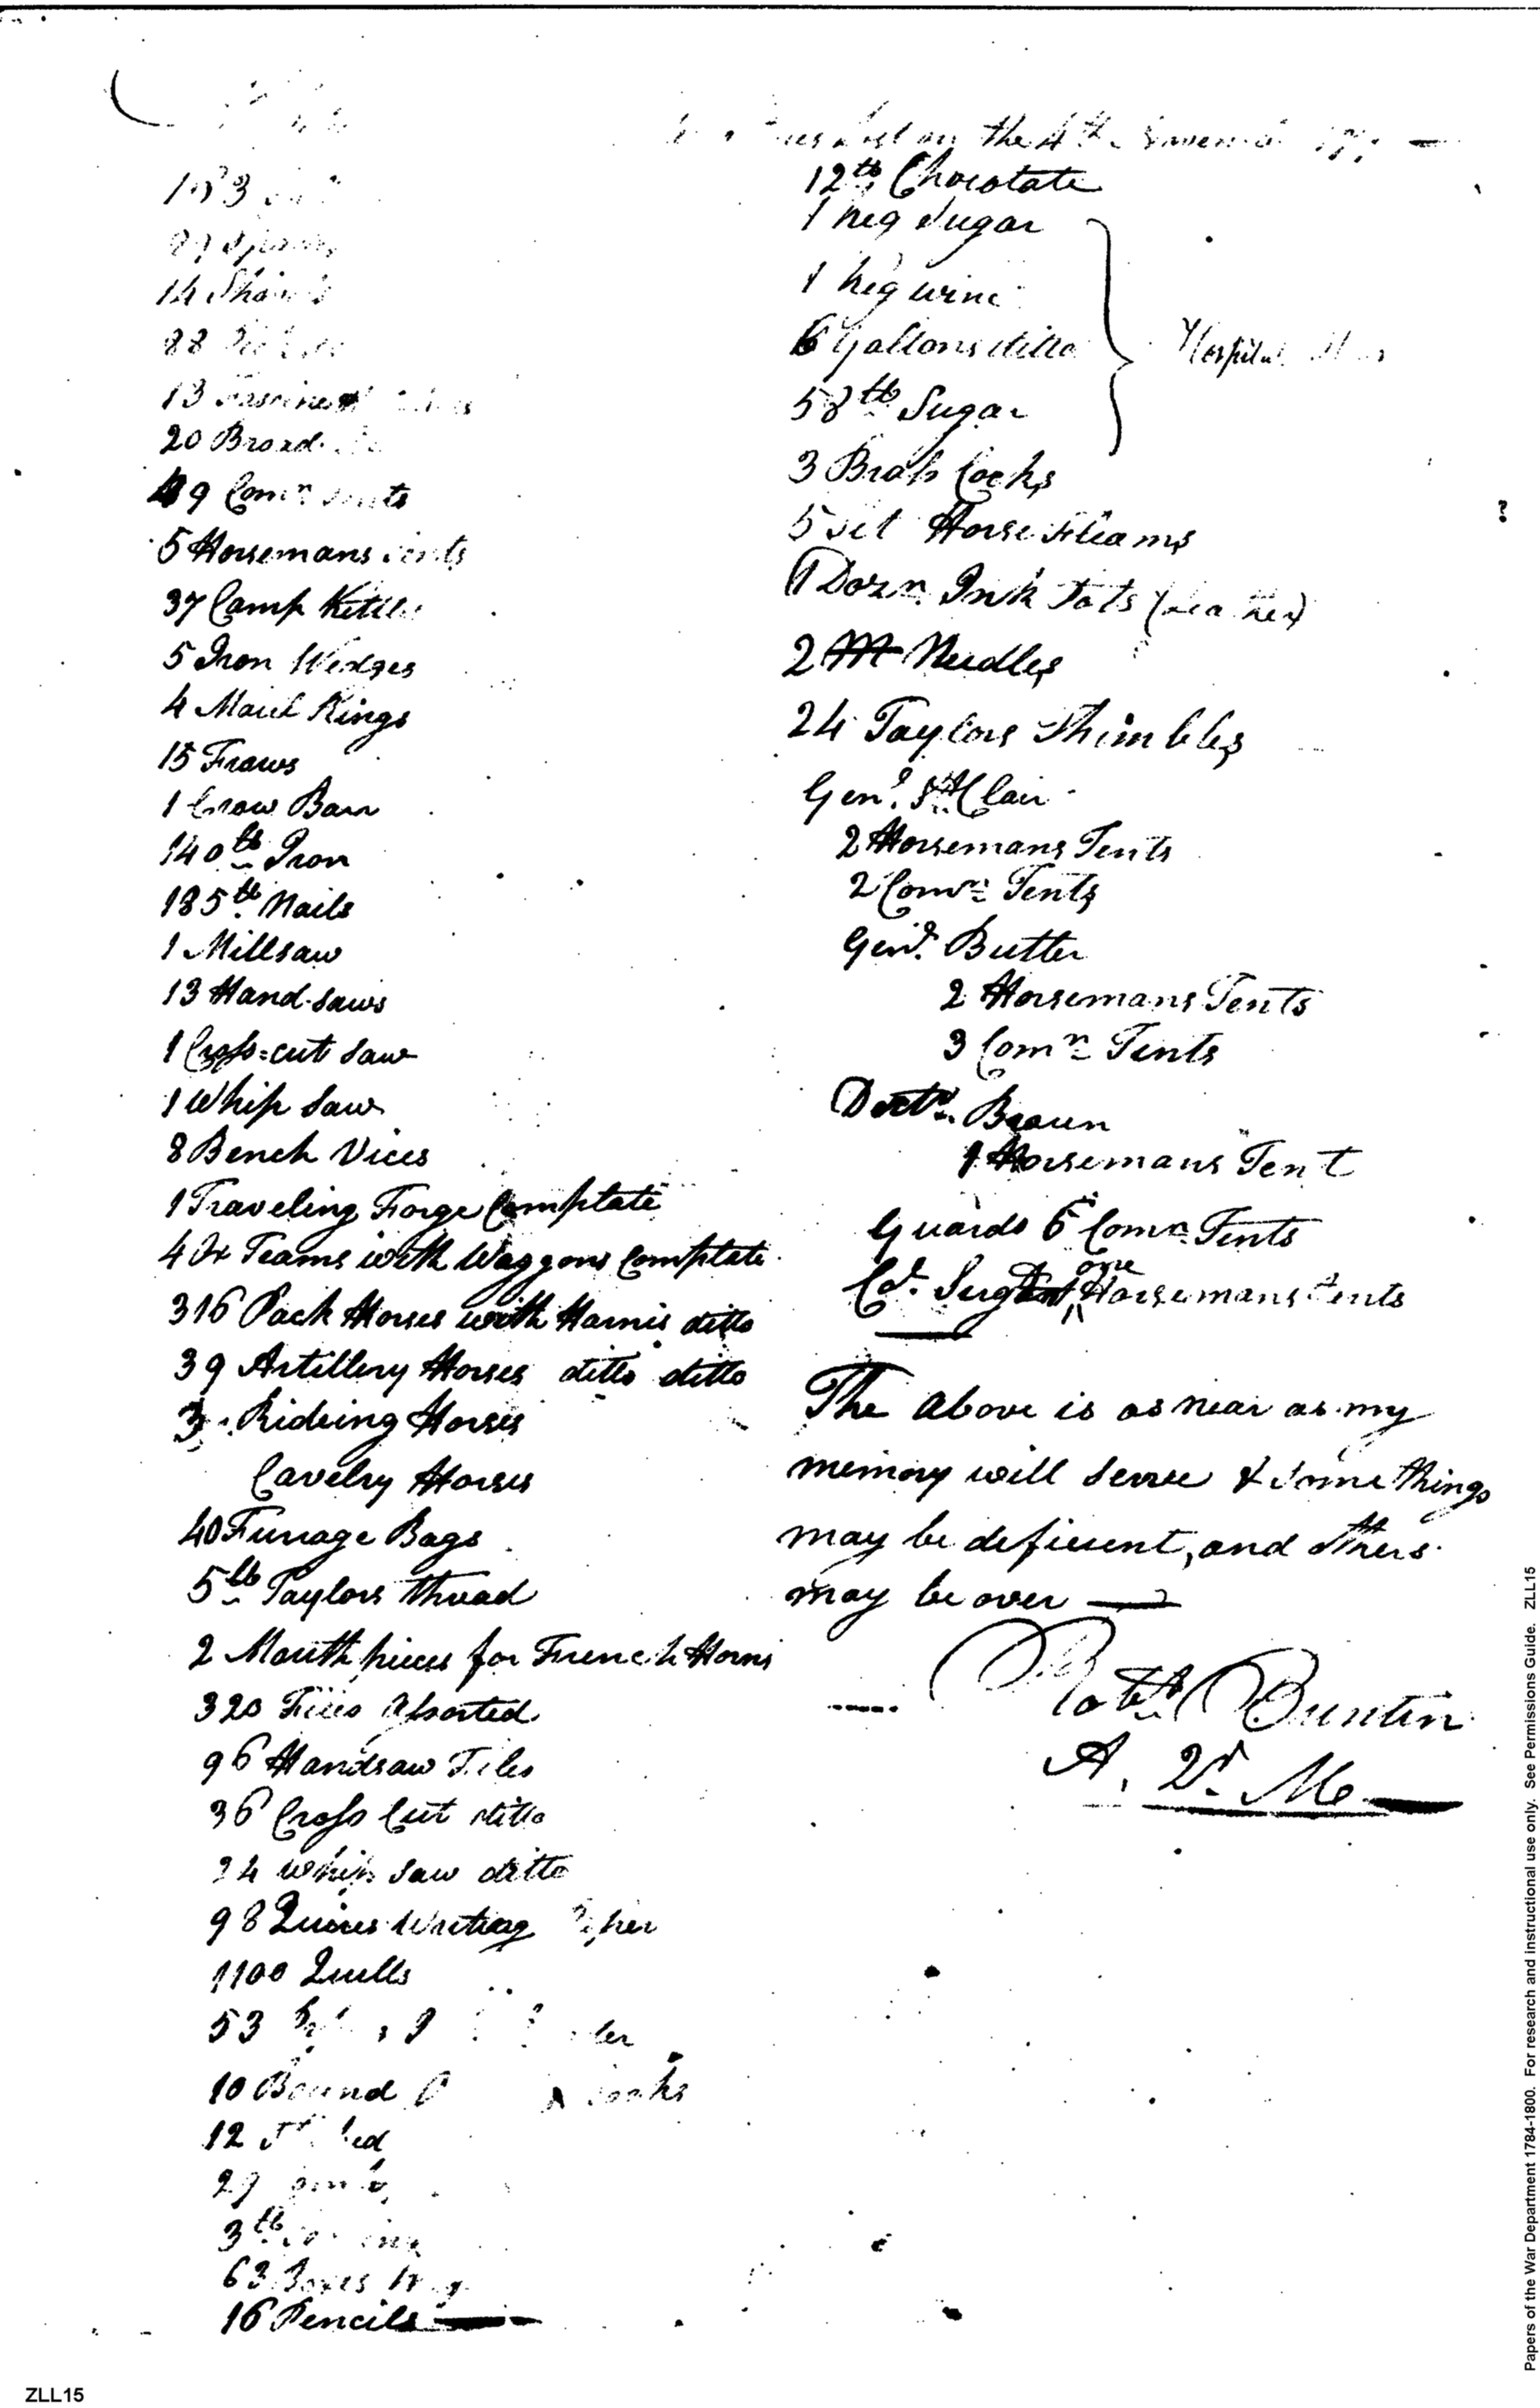 lost on the 4th
103
14
88
13
20 Broad
49 Comn Tents
5 Horsemans Tents
37 Camp Kettles
5 Iron Wedges
4 Maul Rings
15 Fraws
1 Crow Barr
140 lb Iron
185 lb Nails
1 Millsaw
13 Hand-saws
1 Cross=cut saw
1 Whip saw
8 Bench Vices
1 Traveling Forge Complate
4 Ox Teams with Waggons Complate
316 Pack Horses with Harnis ditto
39 Artillery Horses ditto ditto
3 Rideing Horses
Cavelry Horses
40 Furrage Bags
5 lb Taylors thread
2 Mouth pieces for French Horns
320 Files Assorted
96 Handsaw Files
36 Cross Cut ditto
24 whip saw ditto
98 Quires Writing Paper
1100 Quills
53
10 Bound Books
12
29
3 lb
63 Boxes
16 Pencils
12 lb Chocolate
1 Keg Sugar
1 Keg wine
6 Gallons ditto
58 lb Sugar
Hospital
3 Brass Cocks
5 set Horse Fleams
1 Dozn Ink Pots (Leather)
2 Needles
24 Taylors Thimbles
Genl. St Clair
2 Horsemans Tents
2 Comn Tents
Genl. Butler
2 Horsemans Tents
3 Comn Tents
Doctr. Brown
1 Horsemans Tent
Guards 6 Comn Tents
one Horsemans Tents
The above is as near as my
memory will serve & some things
may be deficient, and others
may be over
Robt Buntin
A. Qr. M.
Papers of the War Department 1784-1800. For research and instructional use only. See Permissions Guide. ZLL15
ZLL15